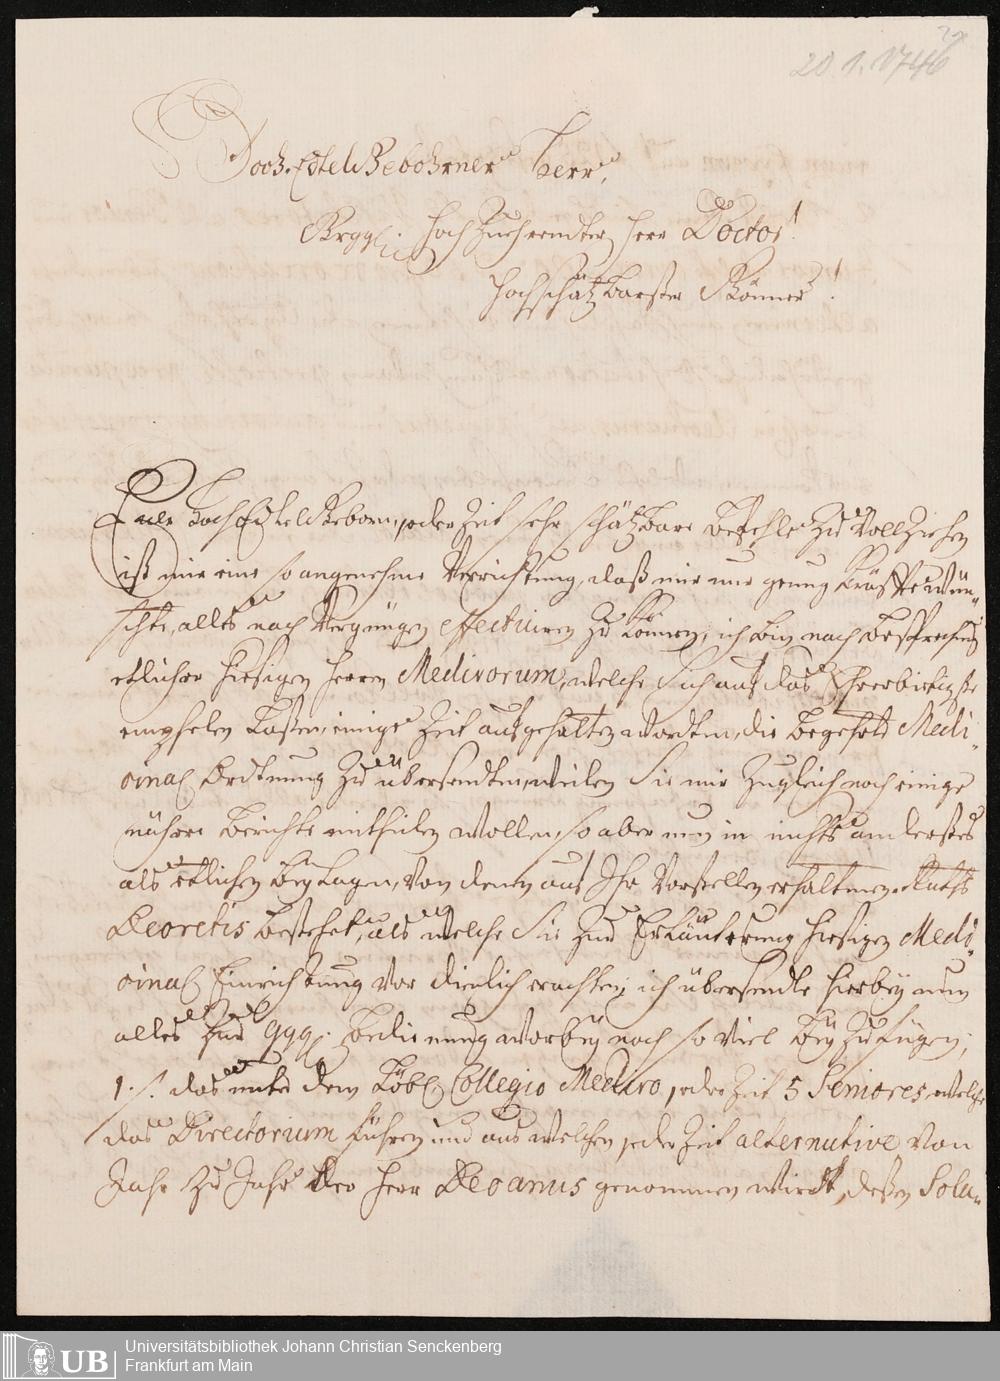 20. 1. 1746
Hoch-Edel Gebohrner Herr,
Hoch Zuehrendter Herr Doctor!
Hochschätzbarster Gönner!
Euer Hoch Edel Geborn, jeder Zeit sehr schätzbare Befehle zu Vollziehen
ist mir eine so angenehme Verrichtung, daß mir nur genug Kräffte wün-
schte, alles nach Vergnügen effectuiren zu können; ich bin nach Besprechung
etlicher hiesigen Herren Medicorum, welche sich auf das Ehrerbietigste
empfelen laßen, einige Zeit aufgehalten worden, die begehrte Medi-
cinal Ordtnung zu übersendten, weilen Sie mir zugleich noch einige
nähere Berichte mittheilen wollen, so aber nun in nichts anderstes
als etlichen Beylagen, von denen auf Ihr Vorstellen erhaltenen Raths
Decretis bestehet, als welche Sie zur Erläuterung hiesigen Medi-
cinal Einrichtung vor dienlich erachten; ich übersendte hierbey nun
alles zur Bedienung worbey noch so viel bey zu fügen;
1. /. das unter dem Löbl. Collegio Medico, jeder Zeit 5 Seniores, welche
das Directorium führen und aus welchen jeder Zeit alternative von
Jahr zu Jahr der Herr Decanus genommen wirdt, deßen Sola-
Universitätsbibliothek Johann Christian Senckenberg
Frankfurt am Main
UB